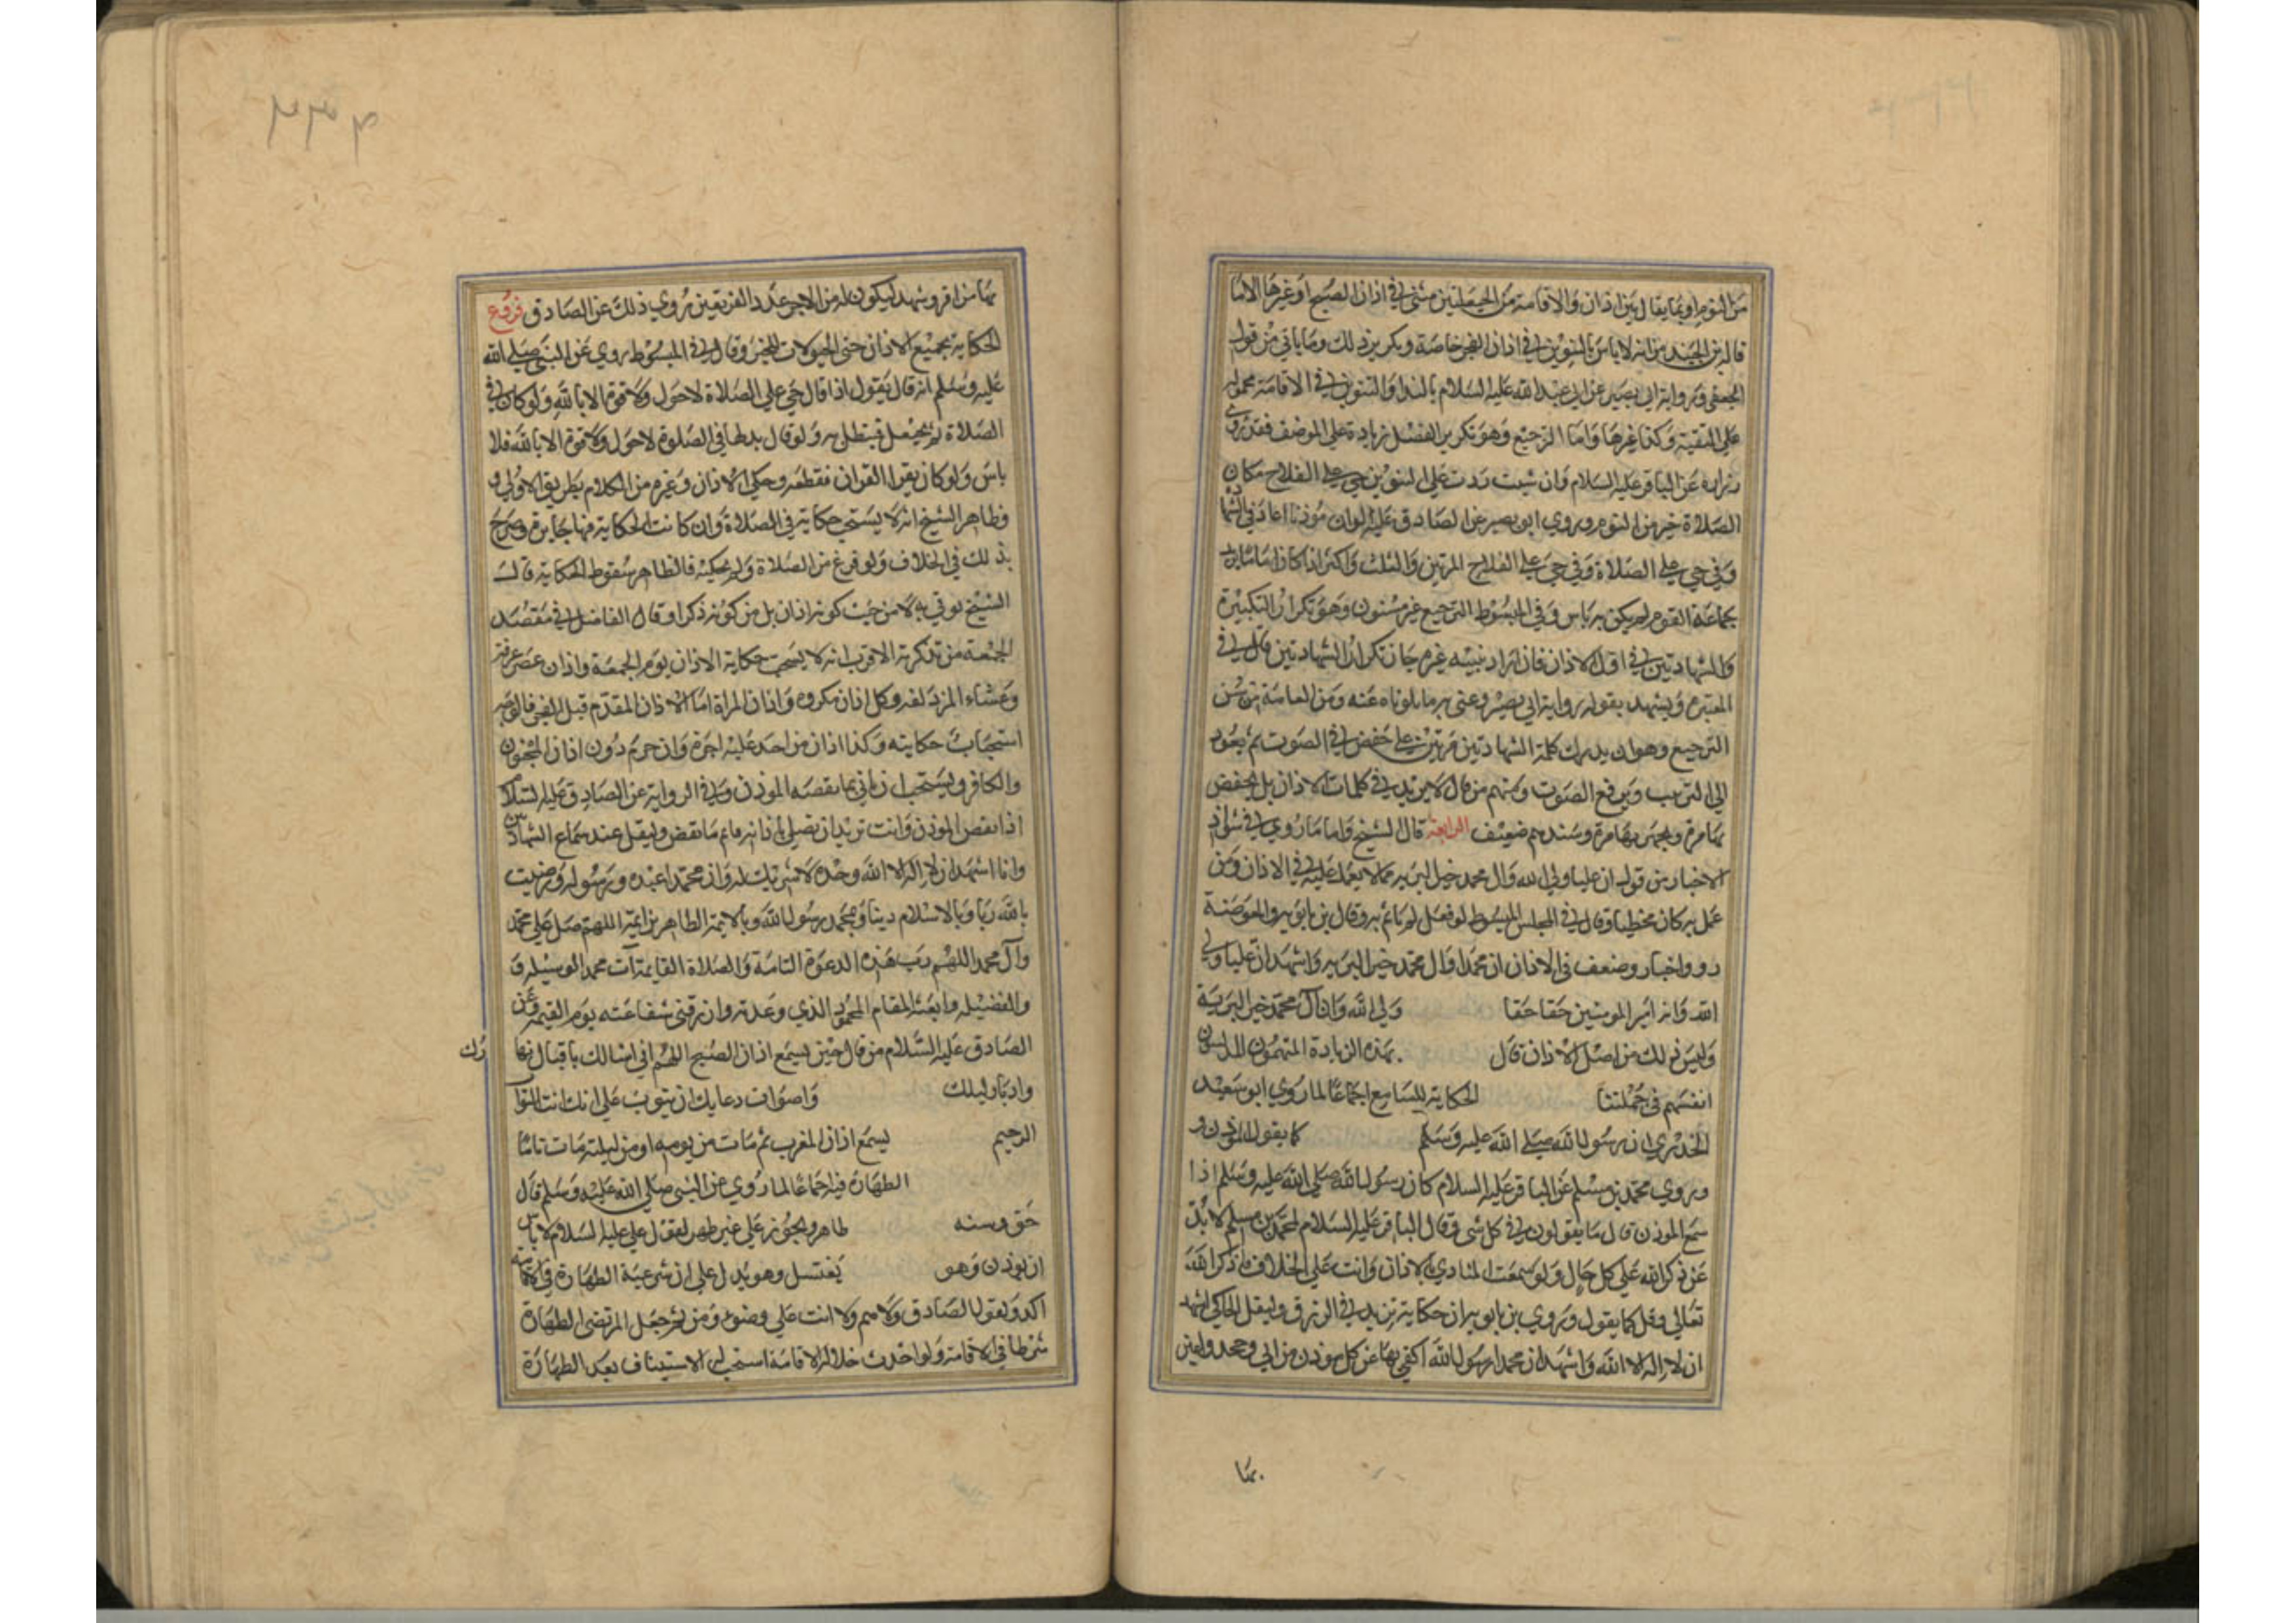 من النوم او بما يقال بين اذان والاقامة من الحيعلتين مثنى في اذان الصبح او غيرها الا ما
قاله بن الجنيد من انه لا باس بالتثويب في اذان الفجر خاصة ويكره في ذلك وما ياتي من قول
الجعفي ورواية ابي بصير عن ابي عبد الله عليه السلام بالندا والتثويب في الاقامة محمول
على التقية وكذا غيرها واما الترجيع وهو تكرير الفصل زيادة على الموضف فقد روى
زرارة عن الباقر عليه السلام وان شيت زدت على التثويب حي على الفلاح مكان
الصلاة خير من النوم وروي ابو بصير عن الصادق عليه لو ان موذنا اعاد في الشهادة
وفي حي على الصلاة وفي حي على الفلاح المرتين والثلث واكثر اذا كان اماما يريد
جماعة القوم لم يكن به باس وفي المبسوط الترجيع غير مسنون وهو تكرار التكبيرة
والشهادتين في اول الاذان فان اراد تنبيه غيره جاز تكرار الشهادتين قال في
المعتبر ويشهد بقوله رواية ابي بصير وعنى به ما تلوناه عنه ومن العامة من سن
الترجيع وهو ان يدرك كلمة الشهادتين مرتين على خفض في الصوت ثم يعود
الى الترتيب ويرفع الصوت ومنهم من قال لا يزيد في كلمات الاذان بل يخفض
بها مرة ويجهر بها مرة وسندهم ضعيف الرابعة قال الشيخ واما ما روي في شواذ
الاخبار من قول ان عليا ولي الله وال محمد خير البريه مما لا يعمل عليه في الاذان ومن
عمل به كان مخطيا وقال في المجلس المبسوط لو فعل لم ياثم به وقال بن بابويه والمفوضة
رووا اخبار وضعف في الاذان ان محمدا وال محمد خير البريه واشهد ان عليا ولي
الله وانه امير المومنين حقا حقا ولي الله وان ال محمد خير البرية
وليس ذلك من اصل الاذان قال بهذه الزيادة المتهمون المدلسون
انفسهم في جملتنا الحكاية للسامع اجماعا لما روي ابو سعيد
الخدري ان رسول الله صلى الله عليه وسلم كما يقول الموذن و
وروي محمد بن مسلم عن الباقر عليه السلام كان رسول الله صلى الله عليه وسلم اذا
سمع الموذن قال ما يقولون في كل شي وقال الباقر عليه السلام لمحمد بن مسلم لا تدع
عن ذكر الله على كل حال ولو سمعت المنادي بالاذان وانت على الخلاف فاذكر الله
تعالى وقل كما يقول وروي بن بابويه ان حكايته تزيد في الرزق وليقل الحاكي اشهد
ان لا اله الا الله واشهد ان محمدا رسول الله اكفي بها عن كل موذن من ابى وجحد واعين
بها
بها من اقر وشهد ليكون له من الاجر عدد الفريقين روي ذلك عن الصادق فروع
الحكاية بجميع الاذان حتى الحيعولات للخبر وقال في المبسوط روي عن النبي صلى الله
عليه وسلم انه قال يقول اذا قال حي على الصلاة لا حول ولا قوة الا بالله ولو كان في
الصلاة لم يحيعل فيبطل به ولو قال بدلها في الصلوة لا حول ولا قوة الا بالله فلا
باس ولو كان يقرا القران فقطعه وحكي الاذان وغيره من الكلام بطريق الاولى و
وظاهر الشيخ انه لا يستحب حكايته في الصلاة وان كانت الحكاية فيها جايزة وصرح
بذلك في الخلاف ولو فرغ من الصلاة ولم يحكيه فالظاهر سقوط الحكاية قالت
الشيخ يوتي به لا من حيث كونه اذان بل من كونه ذكرا وقال الفاضل في مقصد
الجمعة من تذكرته الاقرب انه لا يستحب حكاية الاذان يوم الجمعة واذان عصر عرفة
وعشاء المزدلفه وكل اذان مكروه واذان المراة اما الاذان المقدم قبل الفجر فالوجه
استحباب حكايته وكذا اذان من اخذ عليه اجرة وان حرم دون اذان المجنون
والكافر ويستحب ان ياتي بما نقصه الموذن وفي الرواية عن الصادق عليه السلام
اذا نقص الموذن وانت تريد ان تصلي باذانه فاتم ما نقص وليقل عند سماع الشهادتين
وانا اشهد ان لا اله الا الله وحده لا شريك له وان محمدا عبده ورسوله ورضيت
بالله ربا وبالاسلام دينا وبمحمد رسولا لله وبالايمة الطاهرين ايمة اللهم صل على محمد
وال محمد اللهم رب هذه الدعوة التامة والصلاة القايمة ات محمدا الوسيلة و
والفضيله وابعثه المقام المحمود الذي وعدته وارزقني شفاعته يوم القيمة وعن
الصادق عليه السلام من قال حين يسمع اذان الصبح اللهم اني اسالك باقبال نهارك
وادبار ليلك واصوات دعايك ان تتوب علي انك انت التواب
الرحيم يسمع اذان المغرب ثم مات من يومه او من ليلته مات تائبا
الطهارة فيه اجماعا لما روي عن النبي صلى الله عليه وسلم قال
حق وسنه طاهر ويجوز على غير طهر لقول علي عليه السلام لا باس
ان يوذن وهو يغتسل وهو يدل على ان شرعية الطهارة في الاقامة
اكد ولقول الصادق ولا تقم ولا انت على وضوء ومن ثم جعل المرتضى الطهارة
شرطا في الاقامة ولو احدث خلال الاقامة استحب له الاستيناف بعد الطهارة